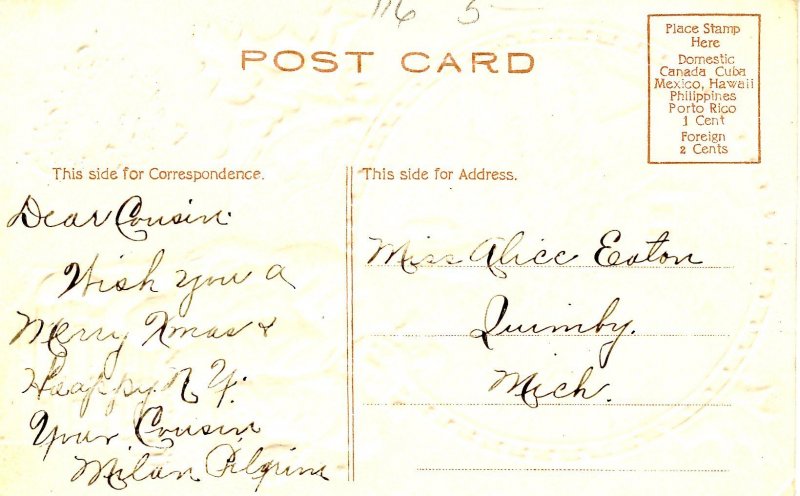 116 5
POST CARD
Place Stamp
Here
Domestic
Canada Cuba
Mexico, Hawaii
Philippines
Porto Rico
1 Cent
Foreign
2 Cents
This side for Correspondence.
Dear Cousin.
Wish you a
Merry Xmas &
Happy N. Y.
Your Cousin
Milan Pilgrim
This side for Address.
Miss Alice Eaton
Quimby.
Mich.